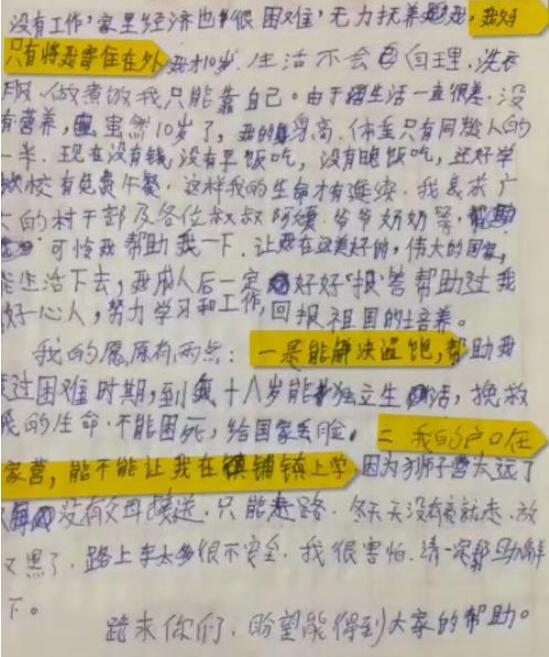 没有工作，家里经济也很困难，无力抚养我，最好
只有将我寄住在外 我才10岁 生活不会自理. 洗衣
服、做煮饭我只能靠自己。由于生活一直很差. 没
有营养，虽然10岁了，我的身高、体重只有同龄人的
一半. 现在没有钱 没有早饭吃，没有晚饭吃，还好学
校有免费午餐. 这样我的生命才有延续. 我恳求广
大的村干部及各位叔叔阿姨. 爷爷奶奶等，
可怜我帮助我一下. 让我在这美好的，伟大的国家，
能生活下去，我成人后一定好好报答帮助过我
好心人，努力学习和工作，回报祖国的培养。
我的愿原有两点：一是能解决温饱，帮助我
度过困难时期，到我十八岁能独立生活，挽救
我的生命. 不能困死，给国家丢脸。二 我的户口在
家营，能不能让我在镇铺镇上学，因为狮子营太远了
没有父母接送. 只能走路. 冬天天没有亮就走. 放
又黑了. 路上车太多很不安全. 我很害怕. 请一定帮助解
下。
跪求你们. 盼望能得到大家的帮助。